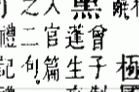 極
黑
曾子
蓬生
人官篇
之二句
引禮記